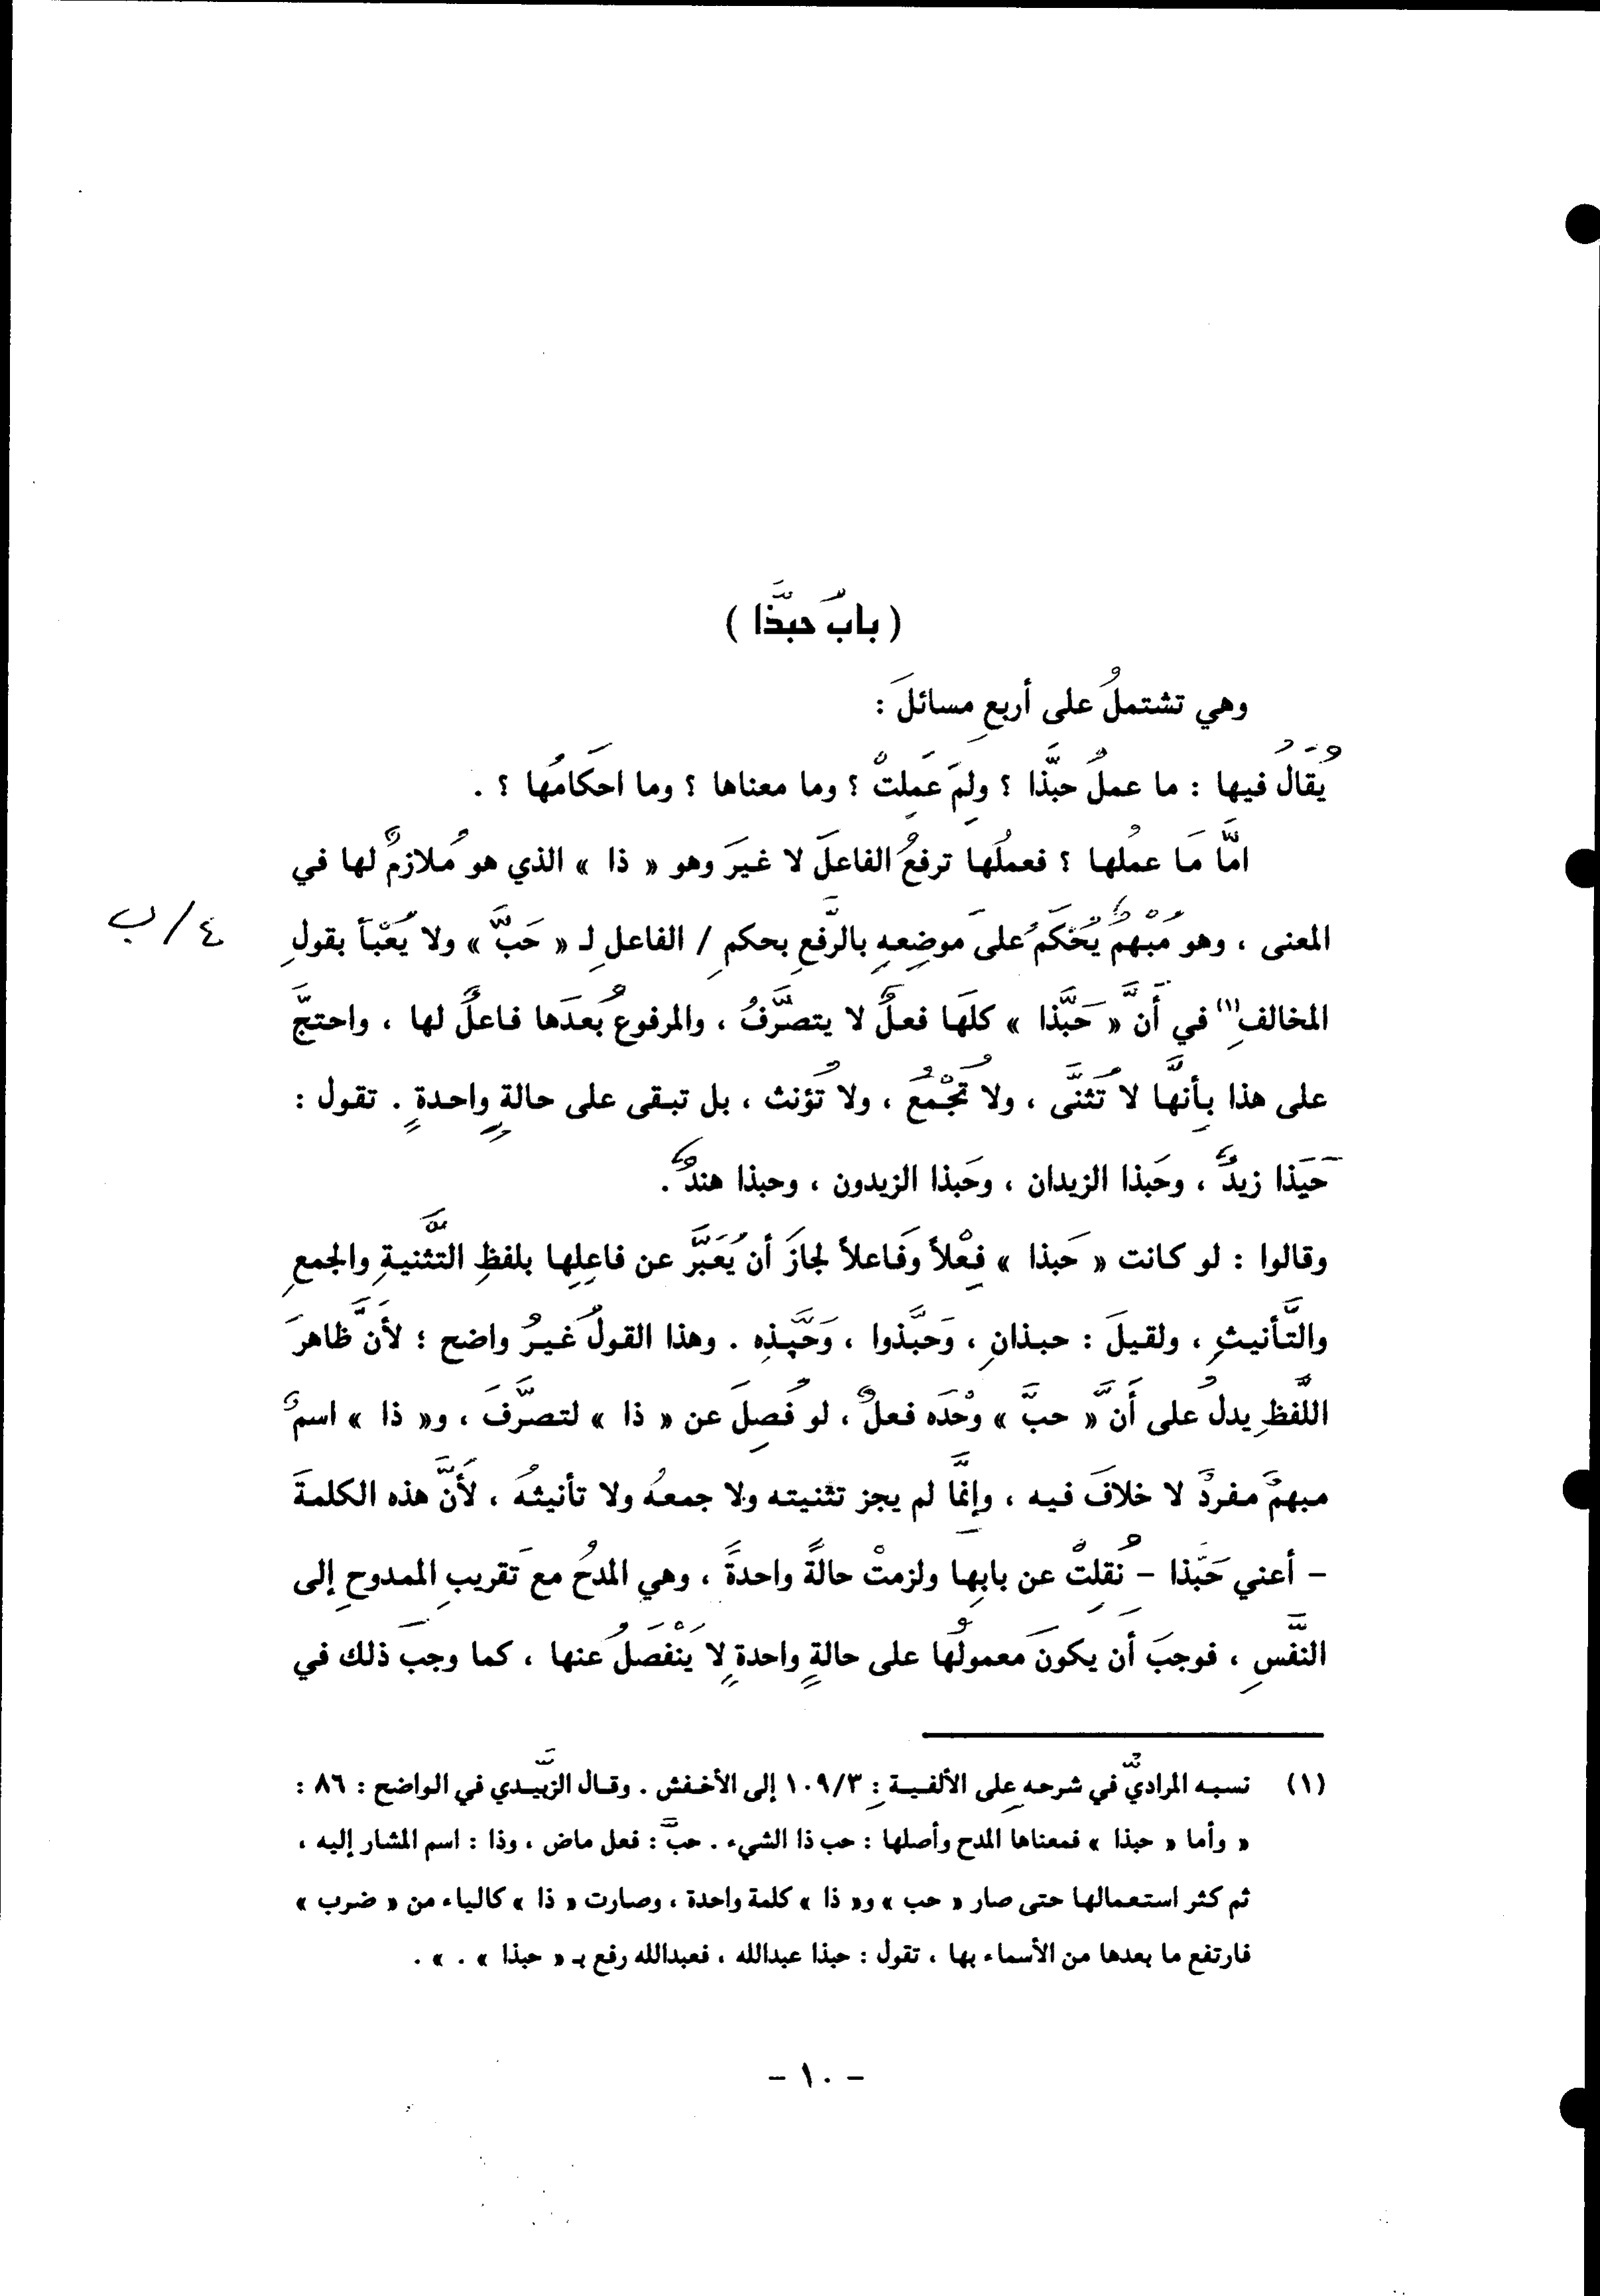 ( بابُ حبَّذَا )
وهي تشتملُ على أربعِ مسائلَ :
يُقَالُ فيها : ما عملُ حبَّذا ؟ ولِمَ عَمِلتْ ؟ وما معناها ؟ وما احكامُها ؟ .
امَّا مَا عملُها ؟ فعملُها ترفعُ الفاعلَ لا غيرَ وهو « ذا » الذي هو مُلازمٌ لها في
المعنى ، وهو مُبْهمٌ يُحْكَمُ على موضِعِهِ بالرَّفعِ بحكمِ / الفاعلِ لـ « حَبَّ » ولا يُعْبَأ بقولِ
٤/ب
المخالفِ(١) في أَنَّ « حَبَّذا » كلَها فعلٌ لا يتصرَّفُ ، والمرفوعُ بعدَها فاعلٌ لها ، واحتجَّ
على هذا بِأنهَّا لا تُثنَّى ، ولا تُجْمَعُ ، ولا تُؤنث ، بل تبقى على حالةٍ واحدةٍ . تقول :
حَبَذا زيدٌ ، وحَبذا الزيدان ، وحَبذا الزيدون ، وحبذا هندٌ .
وقالوا : لو كانت « حَبذا » فِعْلاً وَفَاعلاً لجازَ أن يُعَبَّر عن فاعِلِها بلفظِ التَّثنيةِ والجمعِ
والتَّأنيثِ ، ولقيلَ : حبذانِ ، وَحبَّذوا ، وَحَبَّذِه . وهذا القولُ غيرُ واضح ؛ لأنَّ ظاهرَ
اللَّفظِ يدلُ على أَنَّ « حبَّ » وحْدَه فعلٌ ، لو فُصِلَ عن « ذا » لتصرَّفَ ، و« ذا » اسمٌ
مبهمٌ مفردٌ لا خلافَ فيه ، وإنمَّا لم يجز تثنيته ولا جمعهُ ولا تأنيثهُ ، لأنَّ هذه الكلمةَ
– أعني حَبَّذا – نُقِلتْ عن بابِها ولزمتْ حالةً واحدةً ، وهي المدحُ مع تَقريبِ الممدوحِ إلى
النَّفسِ ، فوجبَ أن يكونَ معمولُها على حالةٍ واحدةٍ لا يَنْفَصلُ عنها ، كما وجبَ ذلك في
(١) نسبه المراديُّ في شرحهِ على الألفيةِ : ١٠٩/٣ إلى الأخفش . وقال الزبَّيدي في الواضح : ٨٦ :
« وأما « حبذا » فمعناها المدح وأصلها : حب ذا الشيء . حبَّ : فعل ماض ، وذا : اسم المشار إليه ،
ثم كثر استعمالها حتى صار « حب » و« ذا » كلمة واحدة ، وصارت « ذا » كالياء من « ضرب »
فارتفع ما بعدها من الأسماء بها ، تقول : حبذا عبدالله ، فعبدالله رفع بـ « حبذا » . » .
– ١٠ –